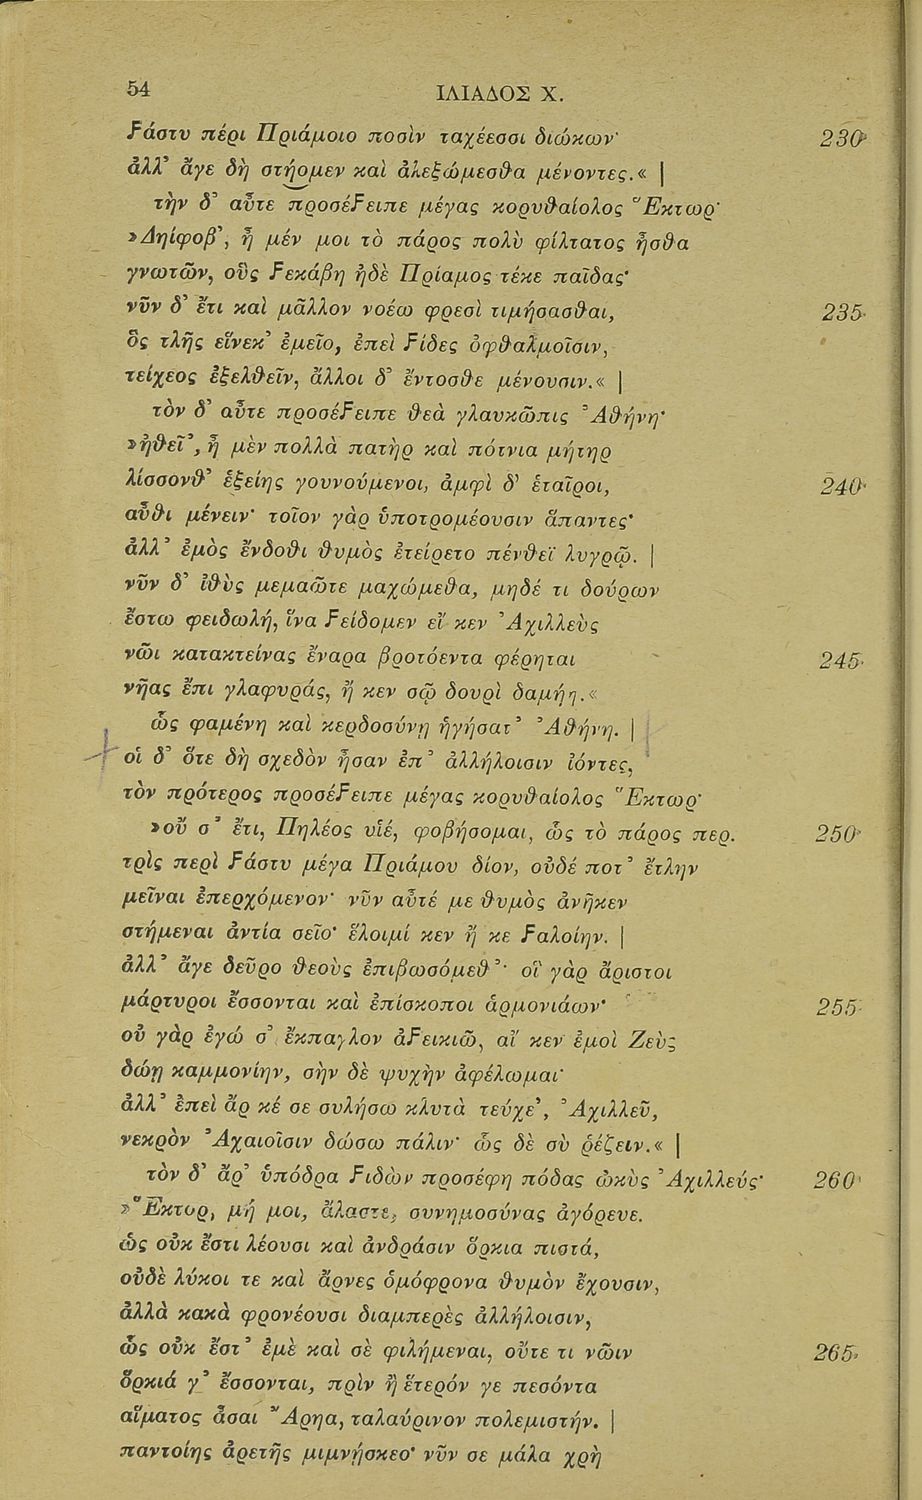 54 ΙΛΙΑΔΟΣ Χ.
ϝάστυ πέρι Πριάμοιο ποσὶν ταχέεσσι διώκων· 230
ἀλλ’ ἄγε δὴ στήομεν καὶ ἀλεξώμεσθα μένοντες.« |
τὴν δ’ αὖτε προσέϝειπε μέγας κορυθαίολος Ἕκτωρ·
»Δηίφοβ’, ἦ μέν μοι τὸ πάρος πολὺ φίλτατος ἦσθα
γνωτῶν, οὓς ϝεκάβη ἠδὲ Πρίαμος τέκε παῖδας·
νῦν δ’ ἔτι καὶ μᾶλλον νοέω φρεσὶ τιμήσασθαι, 235
ὃς τλῆς εἵνεκ’ ἐμεῖο, ἐπεὶ ϝίδες ὀφθαλμοῖσιν,
τείχεος ἐξελθεῖν, ἄλλοι δ’ ἔντοσθε μένουσιν.« |
τὸν δ’ αὖτε προσέϝειπε θεὰ γλαυκῶπις Ἀθήνη·
»ἠθεῖ’, ἦ μὲν πολλὰ πατὴρ καὶ πότνια μήτηρ
λίσσονθ’ ἑξείης γουνούμενοι, ἀμφὶ δ’ ἑταῖροι, 240
αὖθι μένειν· τοῖον γὰρ ὑποτρομέουσιν ἅπαντες·
ἀλλ’ ἐμὸς ἔνδοθι θυμὸς ἐτείρετο πένθεϊ λυγρῷ. |
νῦν δ’ ἰθὺς μεμαῶτε μαχώμεθα, μηδέ τι δούρων
ἔστω φειδωλή, ἵνα ϝείδομεν εἴ κεν Ἀχιλλεὺς
νῶι κατακτείνας ἔναρα βροτόεντα φέρηται 245
νῆας ἔπι γλαφυράς, ἤ κεν σῷ δουρὶ δαμήῃ.«
ὣς φαμένη καὶ κερδοσύνῃ ἡγήσατ’ Ἀθήνη. |
οἱ δ’ ὅτε δὴ σχεδὸν ἦσαν ἐπ’ ἀλλήλοισιν ἰόντες,
τὸν πρότερος προσέϝειπε μέγας κορυθαίολος Ἕκτωρ·
»οὔ σ’ ἔτι, Πηλέος υἱέ, φοβήσομαι, ὡς τὸ πάρος περ. 250
τρὶς περὶ ϝάστυ μέγα Πριάμου δίον, οὐδέ ποτ’ ἔτλην
μεῖναι ἐπερχόμενον· νῦν αὖτέ με θυμὸς ἀνῆκεν
στήμεναι ἀντία σεῖο· ἕλοιμί κεν ἤ κε ϝαλοίην. |
ἀλλ’ ἄγε δεῦρο θεοὺς ἐπιβωσόμεθ’· οἳ γὰρ ἄριστοι
μάρτυροι ἔσσονται καὶ ἐπίσκοποι ἁρμονιάων· 255
οὐ γὰρ ἐγώ σ’ ἔκπαγλον ἀϝεικιῶ, αἴ κεν ἐμοὶ Ζεὺς
δώῃ καμμονίην, σὴν δὲ ψυχὴν ἀφέλωμαι·
ἀλλ’ ἐπεὶ ἄρ κέ σε συλήσω κλυτὰ τεύχε’, Ἀχιλλεῦ,
νεκρὸν Ἀχαιοῖσιν δώσω πάλιν· ὣς δὲ σὺ ῥέζειν.« |
τὸν δ’ ἄρ’ ὑπόδρα ϝιδὼν προσέφη πόδας ὠκὺς Ἀχιλλεύς· 260
»Ἕκτορ, μή μοι, ἄλαστε, συνημοσύνας ἀγόρευε.
ὡς οὐκ ἔστι λέουσι καὶ ἀνδράσιν ὅρκια πιστά,
οὐδὲ λύκοι τε καὶ ἄρνες ὁμόφρονα θυμὸν ἔχουσιν,
ἀλλὰ κακὰ φρονέουσι διαμπερὲς ἀλλήλοισιν,
ὣς οὐκ ἔστ’ ἐμὲ καὶ σὲ φιλήμεναι, οὔτε τι νῶιν 265
ὅρκιά γ’ ἔσσονται, πρὶν ἢ ἕτερόν γε πεσόντα
αἵματος ἆσαι Ἄρηα, ταλαύρινον πολεμιστήν. |
παντοίης ἀρετῆς μιμνήσκεο· νῦν σε μάλα χρὴ